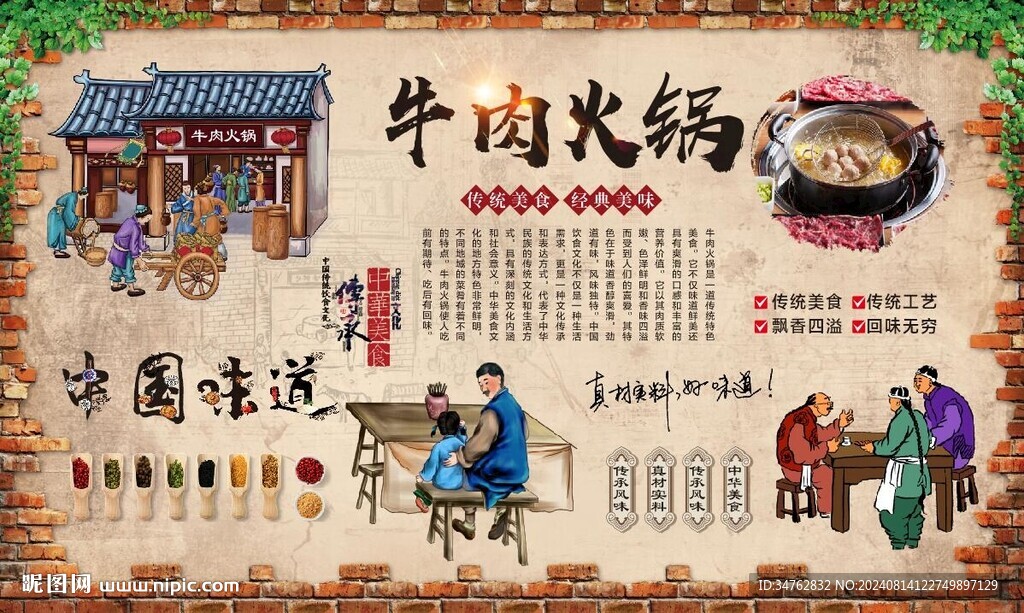 牛肉火锅
牛肉火锅
传统美食 经典美味
牛肉火锅是一道传统特色
美食。它不仅味道鲜美还
具有爽滑的口感和丰富的
营养价值。它以其肉质软
嫩、色泽鲜明和香味四溢
而受到人们的喜爱。其特
色在于味道香醇爽滑，劲
道有味，风味独特。中国
饮食文化不仅是一种生活
需求，更是一种文化传承
和表达方式，代表了中华
民族的传统文化和生活方
式，具有深刻的文化内涵
和社会意义。中华美食文
化的地方特色非常鲜明，
不同地域的菜肴有着不同
的特点。牛肉火锅使人吃
前有期待、吃后有回味。
文化
中華美食
傳承
中国传统饮食文化
传统美食 传统工艺
飘香四溢 回味无穷
中国味道
真材实料,好味道!
传承风味
真材实料
传承风味
中华美食
昵图网 www.nipic.com
ID:34762832 NO:20240814122749897129